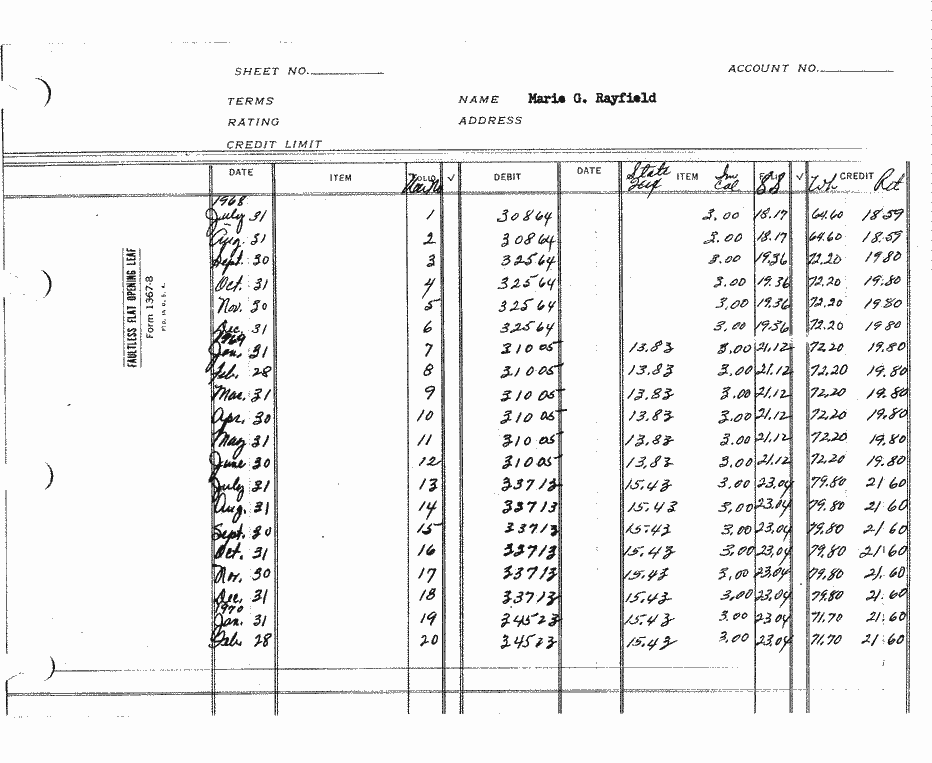 SHEET NO.
ACCOUNT NO.
TERMS
NAME Marie G. Rayfield
RATING
ADDRESS
CREDIT LIMIT
DATE ITEM FOLIO War No ✓ DEBIT DATE State ITEM In Cal FOLIO SS ✓ Wh CREDIT Ret
1968
July 31 1 308 64 3.00 18.17 64.60 18.59
Aug. 31 2 308 64 3.00 18.17 64.60 18.59
Sept. 30 3 325 64 3.00 19.36 72.20 19.80
Oct. 31 4 325 64 3.00 19.36 72.20 19.80
Nov. 30 5 325 64 3.00 19.36 72.20 19.80
Dec. 31 6 325 64 3.00 19.36 72.20 19.80
1969
Jan. 31 7 310 05 13.83 3.00 21.12 72.20 19.80
Feb. 28 8 310 05 13.83 3.00 21.12 72.20 19.80
Mar. 31 9 310 05 13.83 3.00 21.12 72.20 19.80
Apr. 30 10 310 05 13.83 3.00 21.12 72.20 19.80
May 31 11 310 05 13.83 3.00 21.12 72.20 19.80
June 30 12 310 05 13.83 3.00 21.12 72.20 19.80
July 31 13 337 13 15.43 3.00 23.04 79.80 21 60
Aug. 31 14 337 13 15.43 3.00 23.04 79.80 21 60
Sept. 30 15 337 13 15.43 3.00 23.04 79.80 21 60
Oct. 31 16 337 13 15.43 3.00 23.04 79.80 21 60
Nov. 30 17 337 13 15.43 3.00 23.04 79.80 21. 60
Dec. 31 18 337 13 15.43 3.00 23.04 79.80 21. 60
1970
Jan. 31 19 345 23 15.43 3.00 23 04 71.70 21. 60
Feb. 28 20 345 23 15.43 3.00 23.04 71.70 21 60
FAULTLESS FLAT OPENING LEAF
Form 1367-8